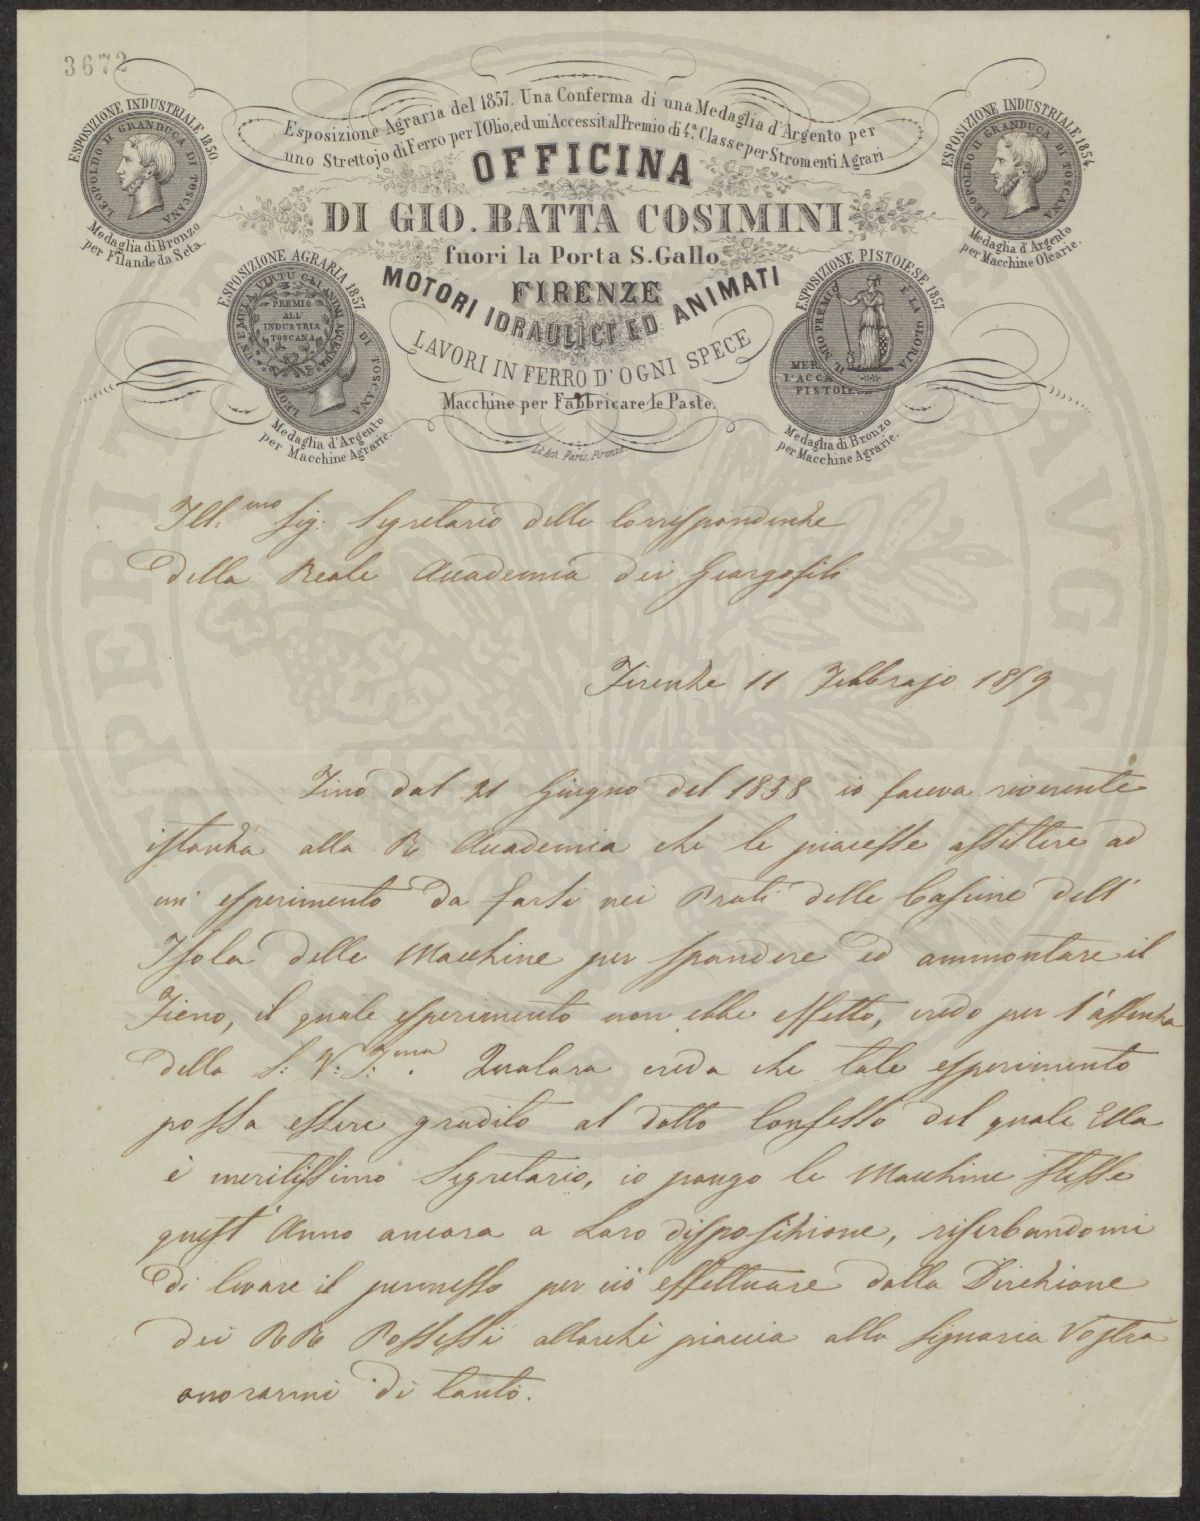 3672
Esposizione Agraria del 1857. Una Conferma di una Medaglia d'Argento per
uno Strettojo di Ferro per l'Olio, ed un'Accessit al Premio di 4.ª Classe per Stromenti Agrari
OFFICINA
DI GIO. BATTA COSIMINI
fuori la Porta S. Gallo
FIRENZE
MOTORI IDRAULICI ED ANIMATI
LAVORI IN FERRO D'OGNI SPECE
Macchine per Fabbricare le Paste.
Lit. Ach. Paris. Firenze
ESPOSIZIONE INDUSTRIALE 1850.
LEOPOLDO II GRANDUCA DI TOSCANA
Medaglia di Bronzo
per Filande da Seta.
ESPOSIZIONE INDUSTRIALE 1854.
LEOPOLDO II GRANDUCA DI TOSCANA
Medaglia d'Argento
per Macchine Olearie.
ESPOSIZIONE AGRARIA 1857
PREMIO
ALL'
INDUSTRIA
TOSCANA
DI TOSCANA
Medaglia d'Argento
per Macchine Agrarie.
ESPOSIZIONE PISTOIESE 1857
IL MIO PREMIO È LA GLORIA
MER
L'ACCA
PISTOIESE
Medaglia di Bronzo
per Macchine Agrarie.
Ill:mo Sig: Segretario delle Corrispondenze
della Reale Accademia dei Georgofili
Firenze 11 Febbrajo 1859
Fino dal 21 Giugno del 1858 io faceva riverente
istanza alla R Accademia che le piacesse assistere ad
un' esperimento da farsi nei Prati delle Cascine dell'
Isola delle Macchine per spandere ed ammontare il
Fieno, il quale esperimento non ebbe effetto, credo per l'assenza
della S: V: I:ma. Qualora creda che tale esperimento
possa essere gradito al dotto Consesso del quale Ella
è meritissimo Segretario, io pongo le Macchine stesse
quest'Anno ancora a Loro disposizione, riserbandomi
di levare il permesso per ciò effettuare dalla Direzione
dei RR Possessi allorchè piaccia alla Signoria Vostra
onorarmi di tanto.